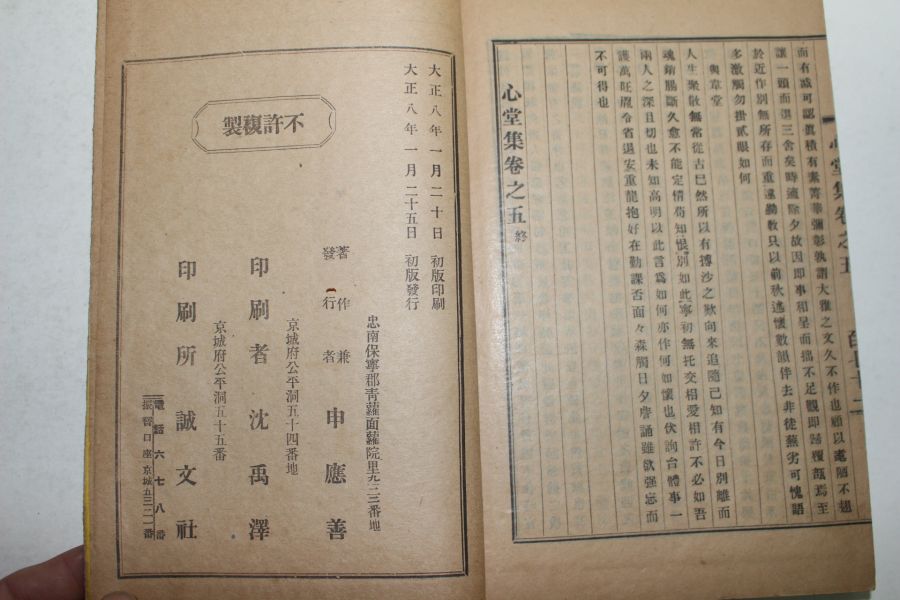 而有誠可認眞積有素
讓一頭而還三舍矣時適除夕故因卽事和呈而拙不足觀卽歸覆瓿焉至
於近作別無所存而重違勤敎只以前秋述懷數韻伴去非徒蕪劣可愧語
多激觸勿掛貳眼如何
與韋堂
人生聚散無常從古已然所以有摶沙之歎向來追隨已知有今日別離而
魂銷腸斷久愈不能定情苟知恨別如此寧初無托交相愛相許不必如吾
兩人之深且切也未知高明以此言爲如何亦作何如懷也伏詢台體事一
護萬旺廕令省過安重龍抱好在勤課否面々森觸日夕
不可得也
心堂集卷之五終
心堂集卷之五
大正八年一月二十日 初版印刷
大正八年一月二十五日 初版發行
不許複製
忠南保寧郡靑蘿面蘿院里九三三番地
著作兼
發行者 申應善
京城府公平洞五十四番地
印刷者 沈禹澤
京城府公平洞五十五番
印刷所 誠文社
電話六七八番
振替口座京城五三二一番